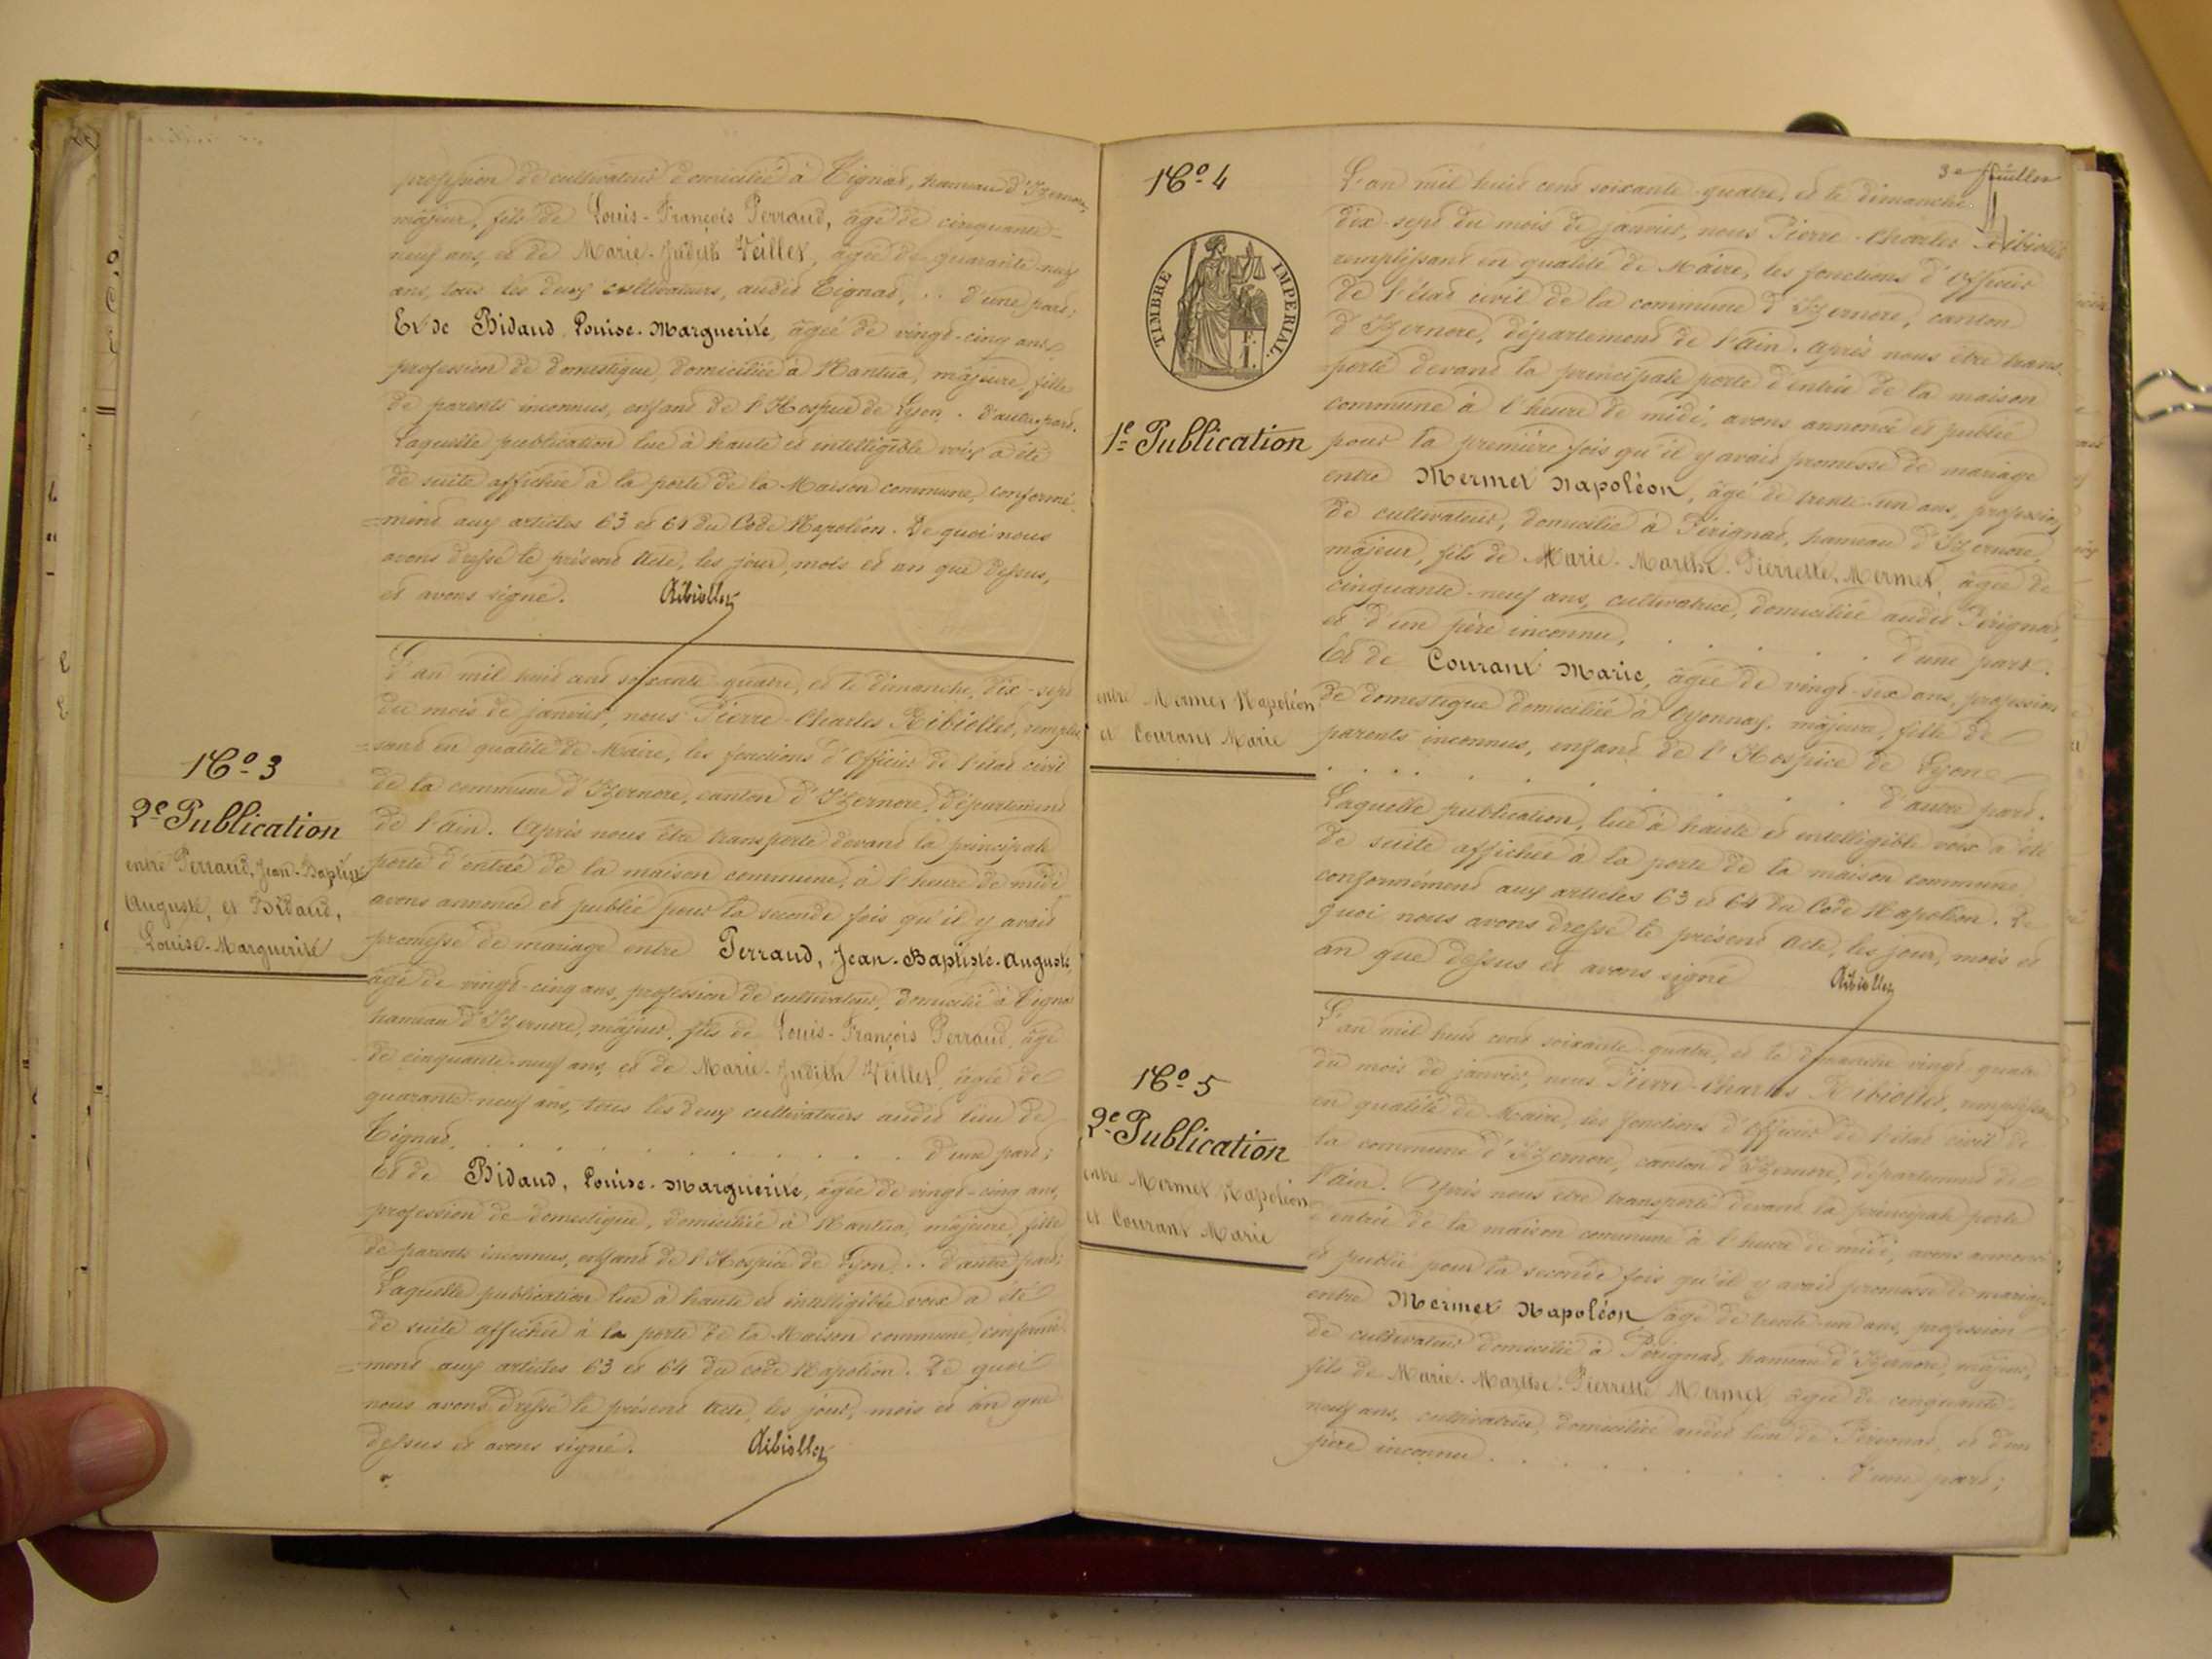 profession de cultivateur domicilié à Tignat, hameau d'Izernore,
majeur, fils de Louis-François Perraud, âgé de cinquante-
neuf ans, et de Marie-Judith Veillet, âgée de quarante-neuf
ans, tous les deux cultivateurs, audit Tignat, .. d'une part;
Et de Bidaud, Louise-Marguerite, âgée de vingt-cinq ans,
profession de domestique, domiciliée à Nantua, majeure, fille
de parents inconnus, enfant de l'Hospice de Lyon. d'autre part.
Laquelle publication lue à haute et intelligible voix a été
de suite affichée à la porte de la Maison commune, conformé-
=ment aux articles 63 et 64 du Code Napoléon. De quoi nous
avons dressé le présent Acte, les jour, mois et an que dessus,
et avons signé. Ribiollet
N° 3
2e Publication
entre Perraud, Jean-Baptiste
Auguste, et Bidaud,
Louise-Marguerite
L'an mil huit cent soixante-quatre, et le dimanche, dix-sept
du mois de janvier, nous Pierre-Charles Ribiollet, remplis
=sant en qualité de Maire, les fonctions d'Officier de l'état civil
de la commune d'Izernore, canton d'Izernore, département
de l'Ain. Après nous être transporté devant la principale
porte d'entrée de la maison commune, à l'heure de midi
avons annoncé et publié pour la seconde fois qu'il y avait
promesse de mariage entre Perraud, Jean-Baptiste-Auguste,
âgé de vingt-cinq ans, profession de cultivateur, domicilié à Tignat
hameau d'Izernore, majeur, fils de Louis-François Perraud, âgé
de cinquante-neuf ans, et de Marie-Judith Veillet, âgée de
quarante-neuf ans, tous les deux cultivateurs audit lieu de
Tignat, . . . . . . . . . . . d'une part;
Et de Bidaud, Louise-Marguerite, âgée de vingt-cinq ans,
profession de domestique, domiciliée à Nantua, majeure, fille
de parents inconnus, enfant de l'Hospice de Lyon. .. d'autre part;
Laquelle publication lue à haute et intelligible voix a été
de suite affichée à la porte de la Maison commune, conformé-
=ment aux articles 63 et 64 du code Napoléon. De quoi
nous avons dressé le présent Acte, les jour, mois et an que
dessus et avons signé. Ribiollet
3e feuillet
N° 4
TIMBRE IMPERIAL.
1e Publication
entre Mermet Napoléon
et Courant Marie
L'an mil huit cent soixante-quatre, et le dimanche
dix-sept du mois de janvier, nous Pierre-Charles Ribiollet
remplissant en qualité de Maire, les fonctions d'Officier
de l'état civil de la commune d'Izernore, canton
d'Izernore, département de l'Ain. Après nous être trans-
porté devant la principale porte d'entrée de la maison
commune à l'heure de midi, avons annoncé et publié
pour la première fois qu'il y avait promesse de mariage
entre Mermet Napoléon, âgé de trente-un ans, profession
de cultivateur, domicilié à Pérignat, hameau d'Izernore,
majeur, fils de Marie-Marthe-Pierrette Mermet, âgée de
cinquante-neuf ans, cultivatrice, domiciliée audit Pérignat,
et d'un père inconnu, . . . . . d'une part.
Et de Courant Marie, âgée de vingt-six ans, profession
de domestique domiciliée à Oyonnax, majeure, fille de
parents inconnus, enfant de l'Hospice de Lyon
. . . . . . . . . . d'autre part.
Laquelle publication, lue à haute et intelligible voix a été
de suite affichée à la porte de la maison commune
conformément aux articles 63 et 64 du Code Napoléon. De
quoi nous avons dressé le présent Acte, les jour, mois et
an que dessus et avons signé Ribiollet
N° 5
2e Publication
entre Mermet Napoléon
et Courant Marie
L'an mil huit cent soixante-quatre, et le dimanche vingt-quatre
du mois de janvier, nous Pierre-Charles Ribiollet, remplissant
en qualité de Maire, les fonctions d'officier de l'état civil de
la commune d'Izernore, canton d'Izernore, département de
l'Ain. Après nous être transporté devant la principale porte
d'entrée de la maison commune à l'heure de midi, avons annoncé
et publié pour la seconde fois qu'il y avait promesse de mariage
entre Mermet Napoléon, âgé de trente-un ans, profession
de cultivateur domicilié à Pérignat, hameau d'Izernore, majeur,
fils de Marie-Marthe-Pierrette Mermet, âgée de cinquante
neuf ans, cultivatrice, domiciliée audit lieu de Pérignat, et d'un
père inconnu . . . . . . . . . d'une part;